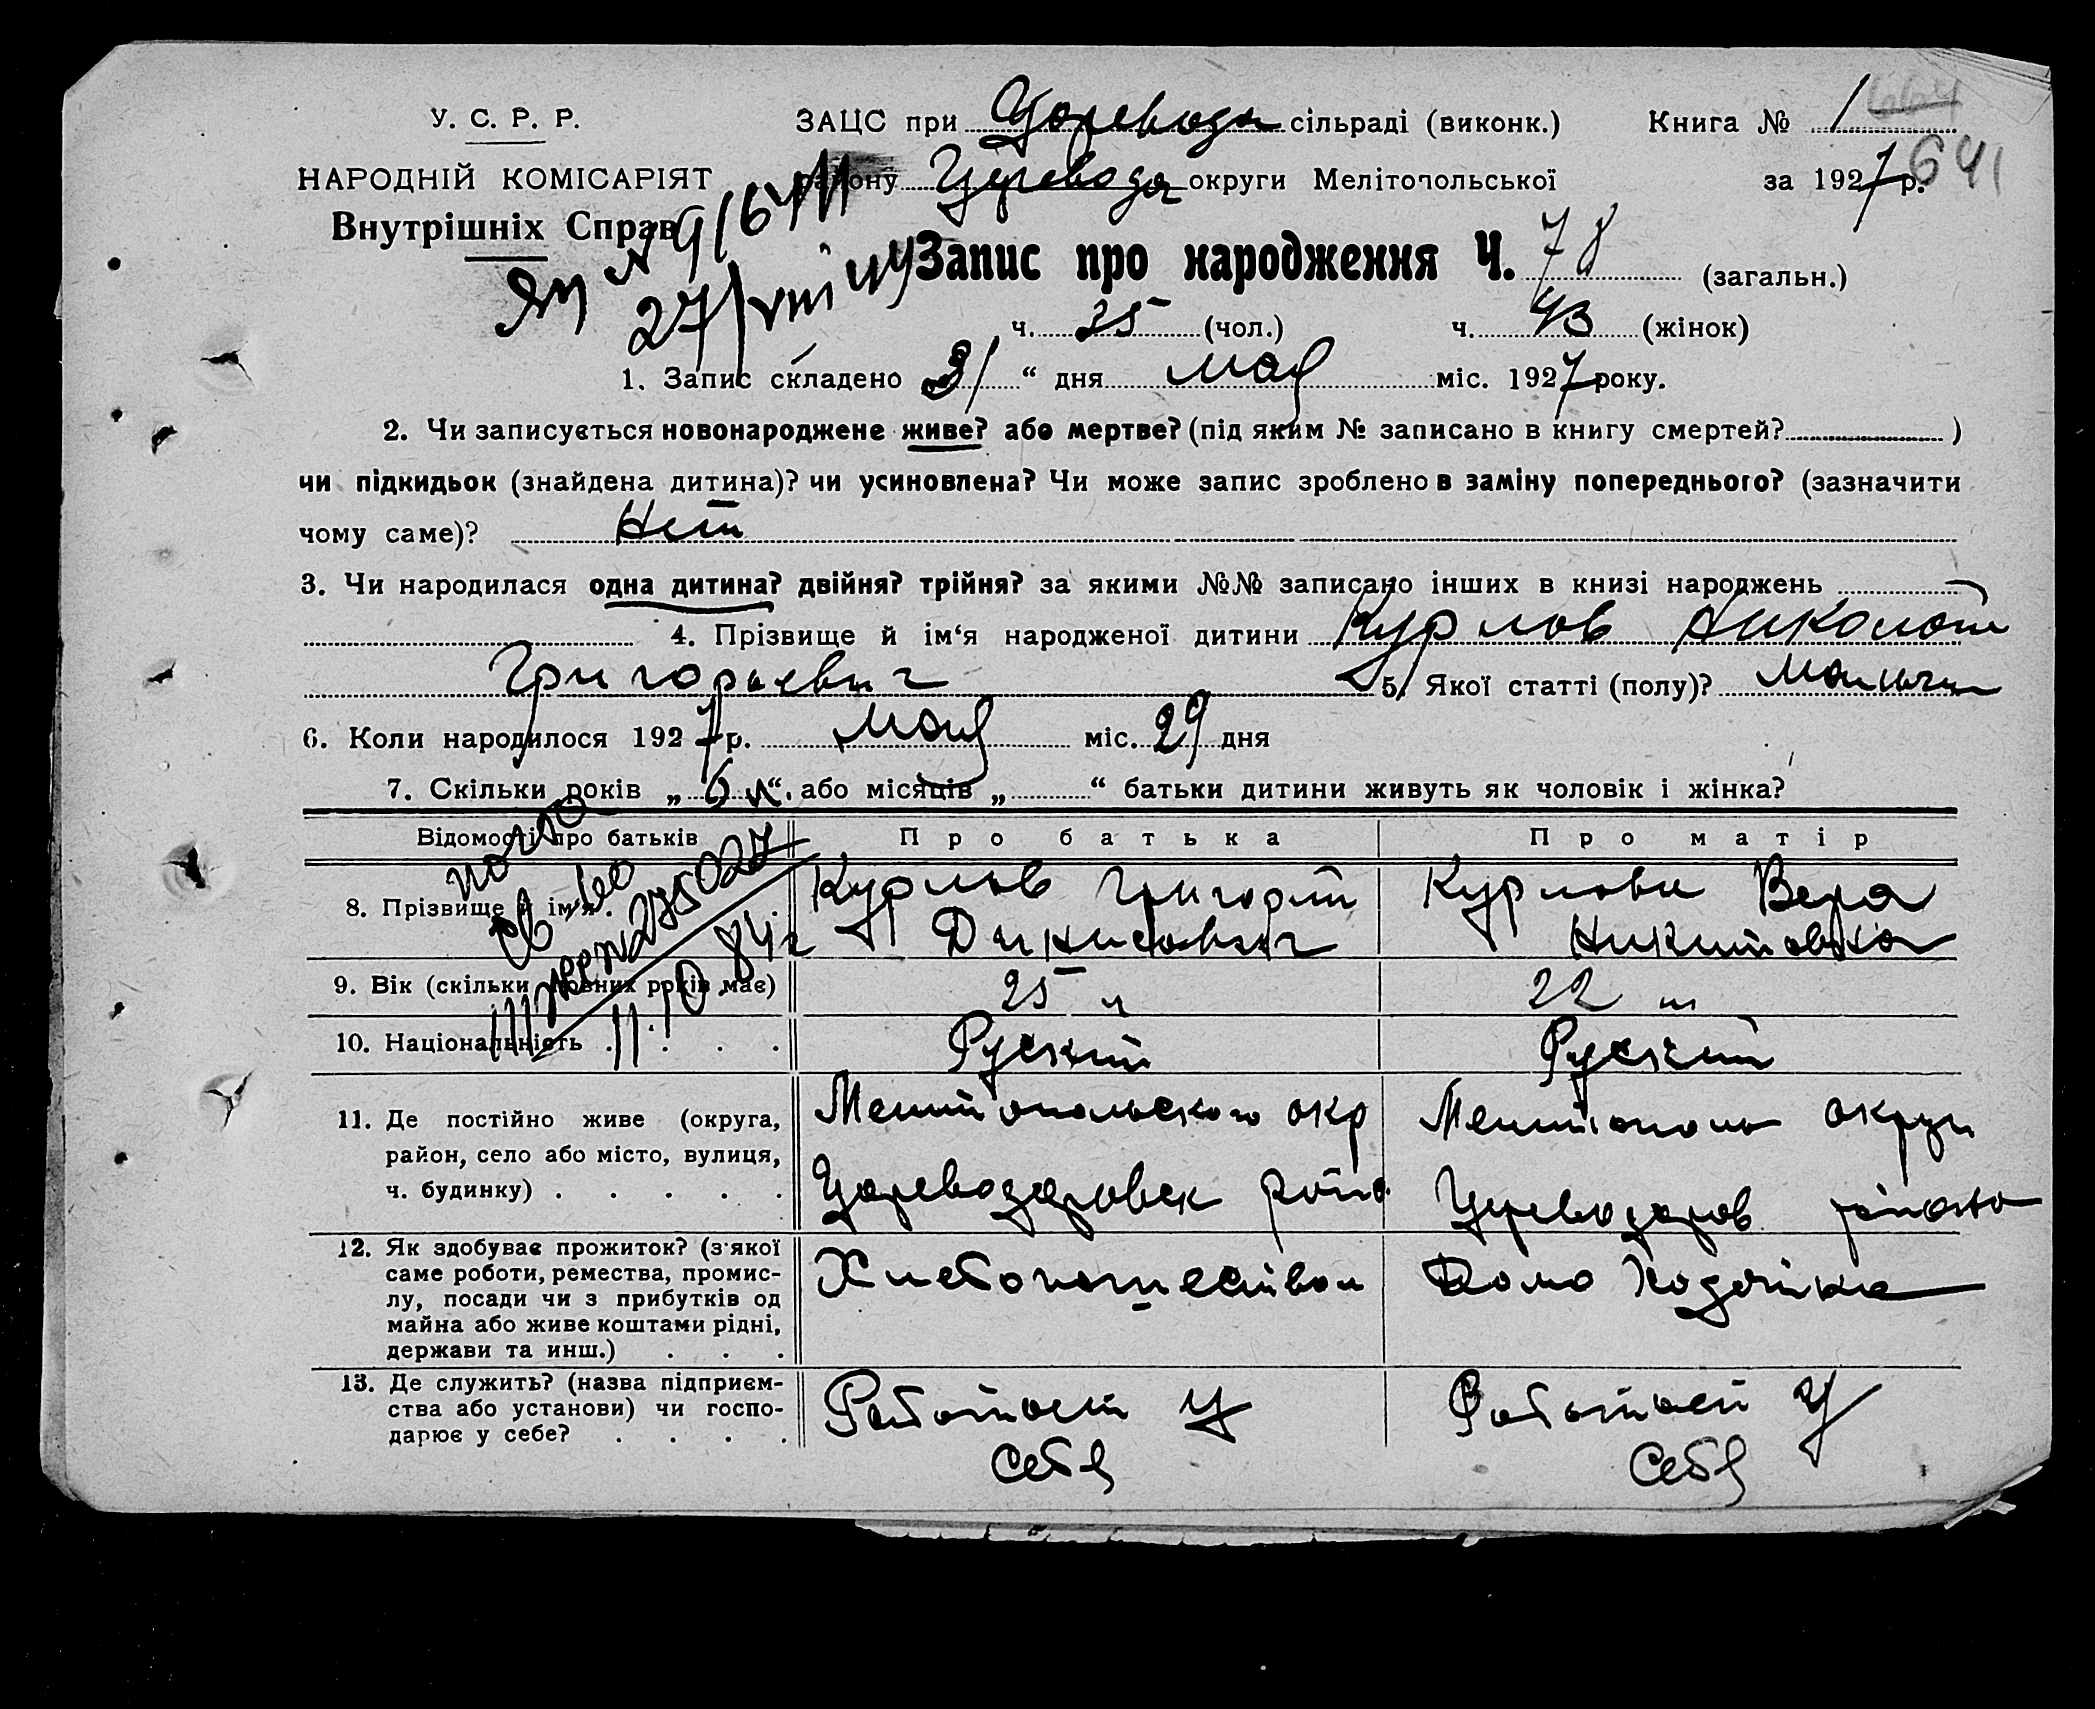 У. С. Р. Р.
НАРОДНІЙ КОМІСАРІЯТ
Внутрішніх Справ
ЗАЦС при Царевода сільраді (виконк.)
Книга № 1 664
641
району Царевода округи Мелітопольської
за 1927 р.
27/VIII
Запис про народження Ч. 78 (загальн.)
ч. 35 (чол.) ч. 43 (жінок)
1. Запис складено 31 “ дня мая міс. 1927 року.
2. Чи записується новонароджене живе? або мертве? (під яким № записано в книгу смертей? )
чи підкидьок (знайдена дитина)? чи усиновлена? Чи може запис зроблено в заміну попереднього? (зазначити
чому саме)? Нет
3. Чи народилася одна дитина? двійня? трійня? за якими №№ записано інших в книзі народжень
4. Прізвище й ім‘я народженої дитини Курлов Николай
Григорьевич 5. Якої статті (полу)? Мальчик
6. Коли народилося 1927 р. мая міс. 29 дня
7. Скільки років „ 6 л “, або місяців „ “ батьки дитини живуть як чоловік і жінка?
Відомості про батьків Про батька Про матір
8. Прізвище й ім‘я. Курлов Григорий Курлова Вера
Динисович Никитовна
св-во
275027
11.10 84г
9. Вік (скільки повних років має) 25 л 22 л
10. Національність . . . . Руский Руский
11. Де постійно живе (округа, Мелитопольского окр Мелитополь округи
район, село або місто, вулиця,
ч. будинку) . . . . . Цареводаровск района Цареводаров района
12. Як здобуває прожиток? (з якої Хлебопашеством Домо Хозяйка
саме роботи, ремества, промис-
лу, посади чи з прибутків од
майна або живе коштами рідні,
держави та инш.) . . .
13. Де служить? (назва підприєм- Работает У Работает У
ства або установи) чи госпо-
дарює у себе? . . . . себя себя